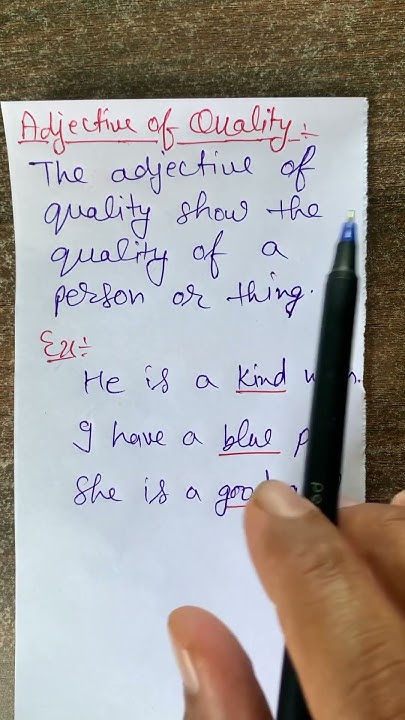 Adjective of Quality :-
The adjective of
quality show the
quality of a
person or thing.
Ex:-
He is a kind
I have a blue
She is a good